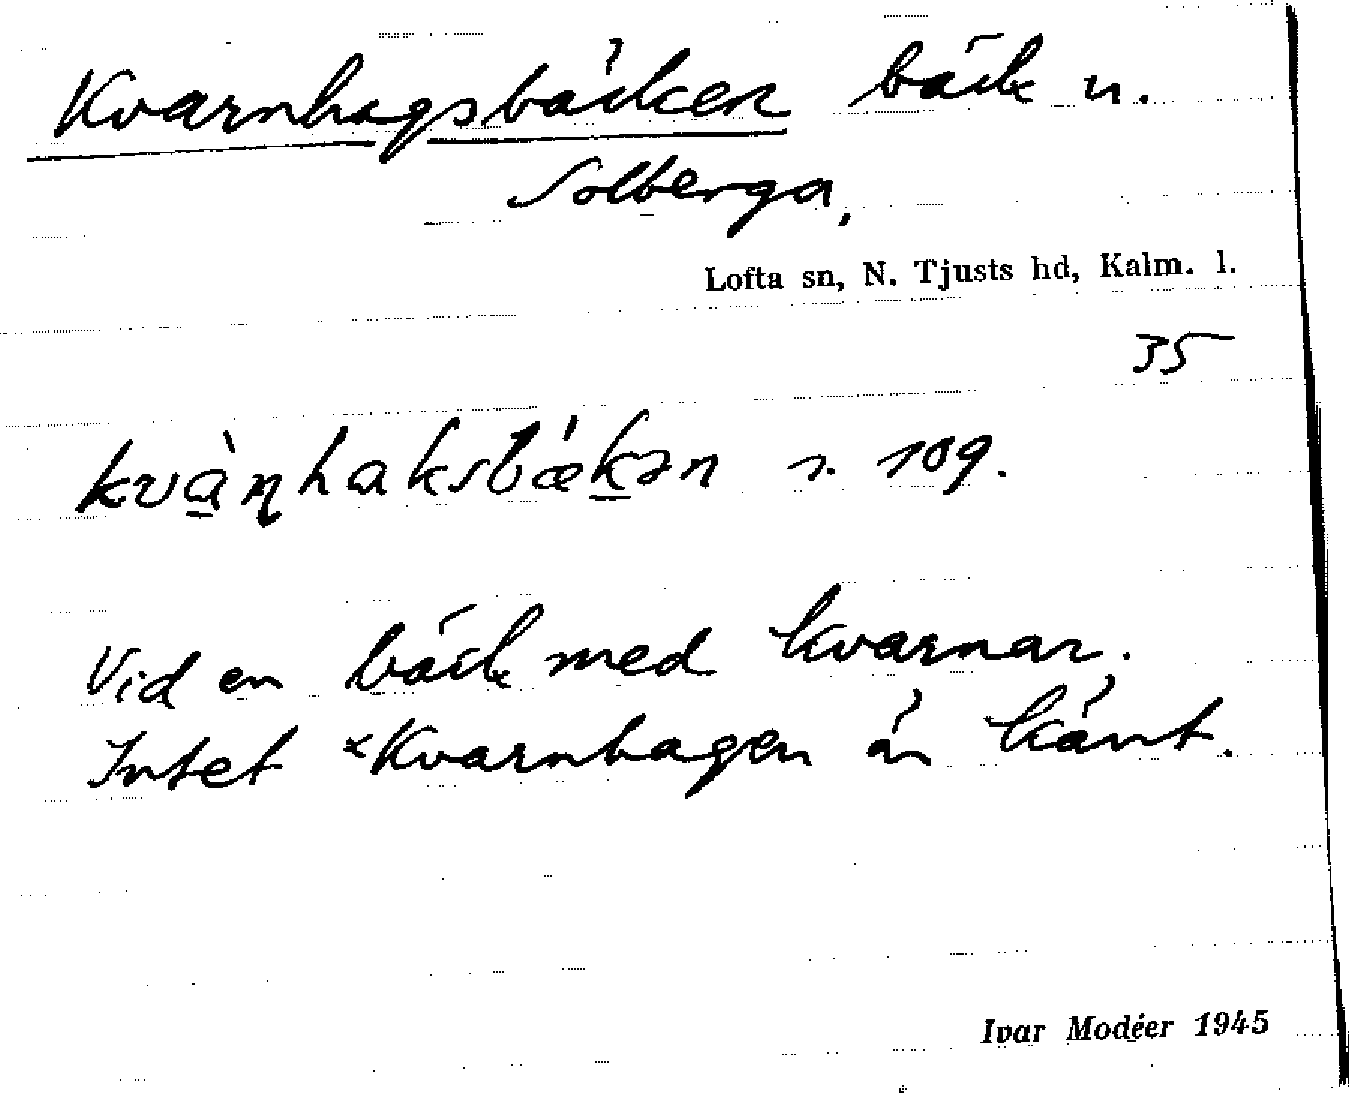 Kvarnhagsbäcken bäck u.
Solberga,
Lofta sn, N. Tjusts hd, Kalm. l.
35
kvàɳhaksbǽkən s. 109.
Vid en bäck med kvarnar.
Intet *Kvarnhagen är känt.
Ivar Modéer 1945